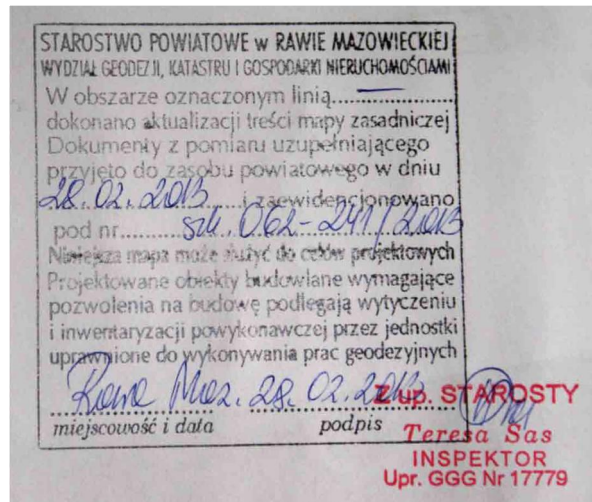 STAROSTWO POWIATOWE w RAWIE MAZOWIECKIEJ
WYDZIAŁ GEODEZJI, KATASTRU I GOSPODARKI NIERUCHOMOŚCIAMI
W obszarze oznaczonym linią..........
dokonano aktualizacji treści mapy zasadniczej
Dokumenty z pomiaru uzupełniającego
przyjęto do zasobu powiatowego w dniu
28.02.2013 i zaewidencjonowano
pod nr.......... 062-241/2013
Niniejsza mapa może służyć do celów projektowych
Projektowane obiekty budowlane wymagające
pozwolenia na budowę podlegają wytyczeniu
i inwentaryzacji powykonawczej przez jednostki
uprawnione do wykonywania prac geodezyjnych
Rawa Maz. 28.02.2013
miejscowość i data podpis
Z up. STAROSTY
Teresa Sas
INSPEKTOR
Upr. GGG Nr 17779